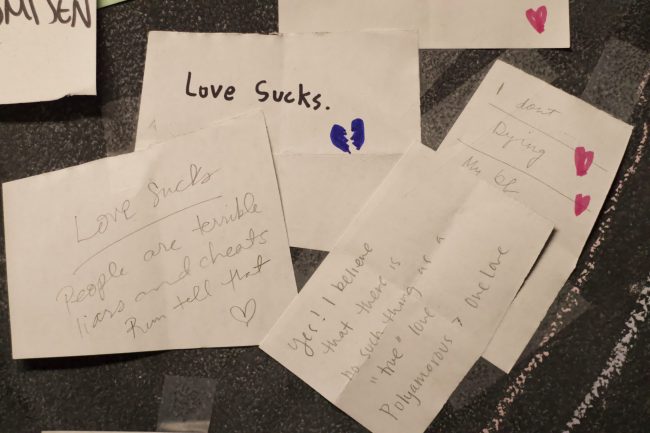 Love Sucks.
Love Sucks
People are terrible
liars and cheats
Run tell that
Yes! I believe
that there is
no such thing as a
"true" love
Polyamorous > One Love
I dont
Dying
My